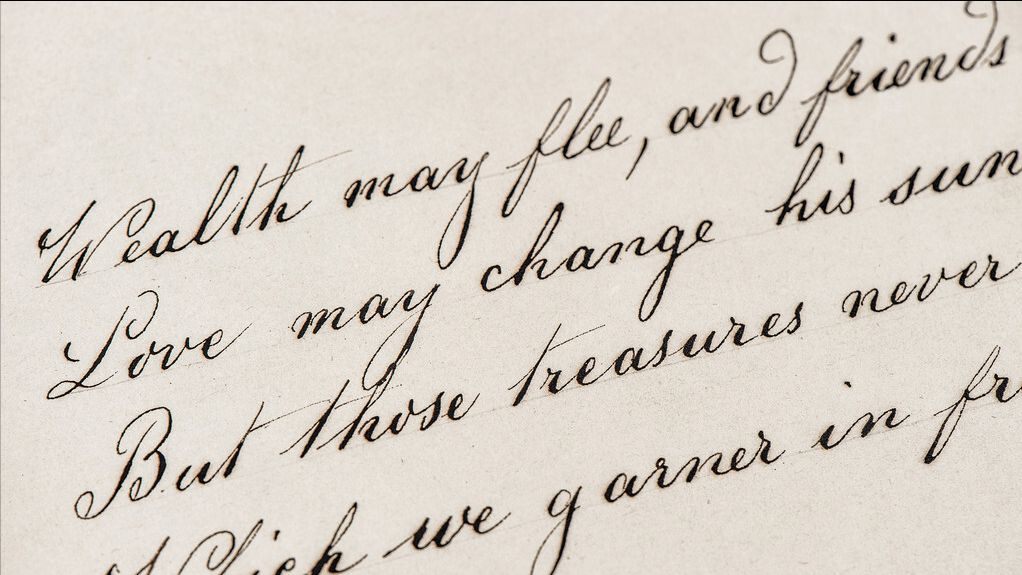 Wealth may flee, and friends
Love may change his sun
But those treasures never
Which we garner in fr